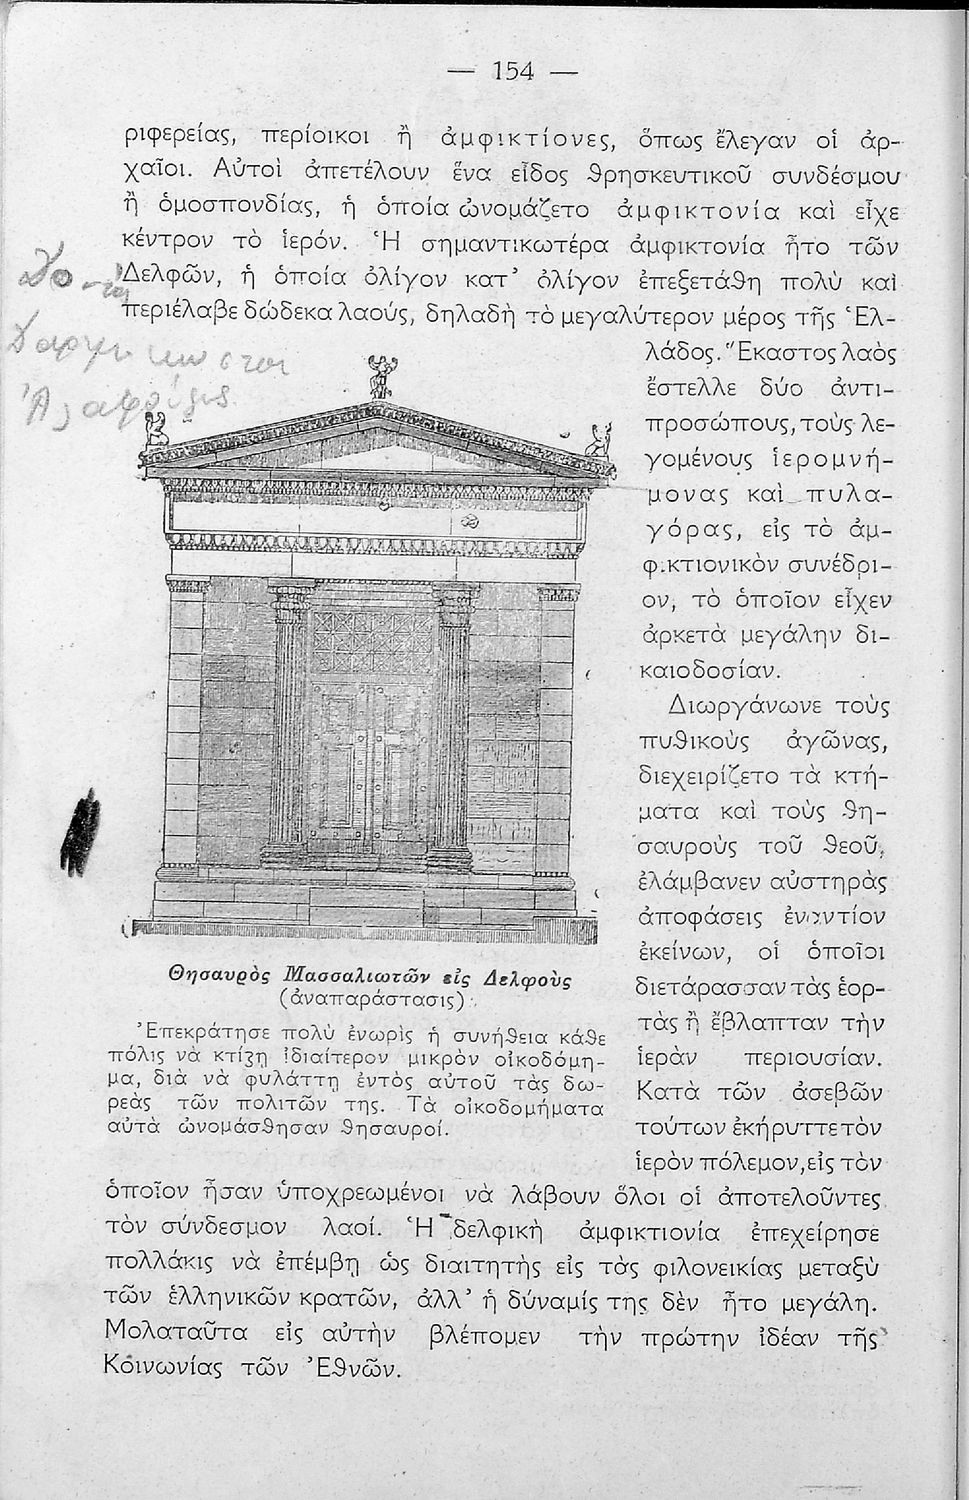 — 154 —
ριφερείας, περίοικοι ἢ ἀμφικτίονες, ὅπως ἔλεγαν οἱ ἀρ-
χαῖοι. Αὐτοὶ ἀπετέλουν ἕνα εἶδος θρησκευτικοῦ συνδέσμου
ἢ ὁμοσπονδίας, ἡ ὁποία ὠνομάζετο ἀμφικτονία καὶ εἶχε
κέντρον τὸ ἱερόν. Ἡ σημαντικωτέρα ἀμφικτονία ἦτο τῶν
Δελφῶν, ἡ ὁποία ὀλίγον κατ’ ὀλίγον ἐπεξετάθη πολὺ καὶ
περιέλαβε δώδεκα λαούς, δηλαδὴ τὸ μεγαλύτερον μέρος τῆς Ἑλ-
λάδος. Ἕκαστος λαὸς
ἔστελλε δύο ἀντι-
προσώπους, τοὺς λε-
γομένους ἱερομνή-
μονας καὶ πυλα-
γόρας, εἰς τὸ ἀμ-
φ.κτιονικὸν συνέδρι-
ον, τὸ ὁποῖον εἶχεν
ἀρκετὰ μεγάλην δι-
καιοδοσίαν.
Διωργάνωνε τοὺς
πυθικοὺς ἀγῶνας,
διεχειρίζετο τὰ κτή-
ματα καὶ τοὺς θη-
σαυροὺς τοῦ θεοῦ,
ἐλάμβανεν αὐστηρὰς
ἀποφάσεις ἐναντίον
ἐκείνων, οἱ ὁποῖοι
διετάρασσαν τὰς ἑορ-
τὰς ἢ ἔβλαπταν τὴν
ἱερὰν περιουσίαν.
Κατὰ τῶν ἀσεβῶν
τούτων ἐκήρυττε τὸν
ἱερὸν πόλεμον, εἰς τὸν
Θησαυρὸς Μασσαλιωτῶν εἰς Δελφοὺς
(ἀναπαράστασις).
Ἐπεκράτησε πολὺ ἐνωρὶς ἡ συνήθεια κάθε
πόλις νὰ κτίζῃ ἰδιαίτερον μικρὸν οἰκοδόμη-
μα, διὰ νὰ φυλάττῃ ἐντὸς αὐτοῦ τὰς δω-
ρεὰς τῶν πολιτῶν της. Τὰ οἰκοδομήματα
αὐτὰ ὠνομάσθησαν θησαυροί.
ὁποῖον ἦσαν ὑποχρεωμένοι νὰ λάβουν ὅλοι οἱ ἀποτελοῦντες
τὸν σύνδεσμον λαοί. Ἡ δελφικὴ ἀμφικτιονία ἐπεχείρησε
πολλάκις νὰ ἐπέμβῃ ὡς διαιτητὴς εἰς τὰς φιλονεικίας μεταξὺ
τῶν ἑλληνικῶν κρατῶν, ἀλλ’ ἡ δύναμίς της δὲν ἦτο μεγάλη.
Μολαταῦτα εἰς αὐτὴν βλέπομεν τὴν πρώτην ἰδέαν τῆς
Κοινωνίας τῶν Ἐθνῶν.